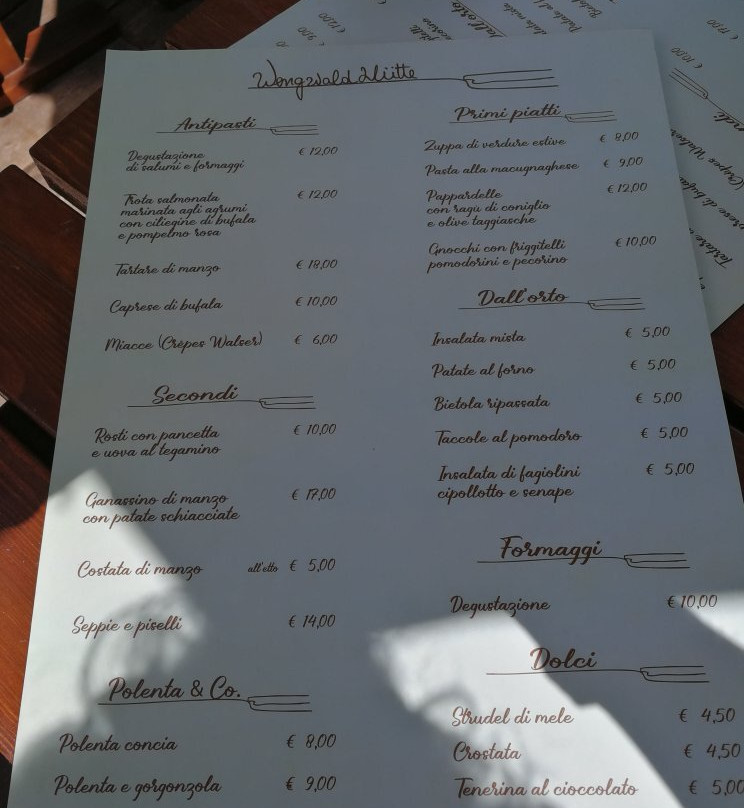 Wengwald Hütte
Antipasti
Degustazione € 12,00
di salumi e formaggi
Trota salmonata € 12,00
marinata agli agrumi
con ciliegine di bufala
e pompelmo rosa
Tartare di manzo € 18,00
Caprese di bufala € 10,00
Miacce (Crêpes Walser) € 6,00
Secondi
Rosti con pancetta € 10,00
e uova al tegamino
Ganassino di manzo € 17,00
con patate schiacciate
Costata di manzo all'etto € 5,00
Seppie e piselli € 14,00
Polenta & Co.
Polenta concia € 8,00
Polenta e gorgonzola € 9,00
Primi piatti
Zuppa di verdure estive € 8,00
Pasta alla macugnaghese € 9,00
Pappardelle € 12,00
con ragù di coniglio
e olive taggiasche
Gnocchi con friggitelli € 10,00
pomodorini e pecorino
Dall'orto
Insalata mista € 5,00
Patate al forno € 5,00
Bietola ripassata € 5,00
Taccole al pomodoro € 5,00
Insalata di fagiolini € 5,00
cipollotto e senape
Formaggi
Degustazione € 10,00
Dolci
Strudel di mele € 4,50
Crostata € 4,50
Tenerina al cioccolato € 5,00